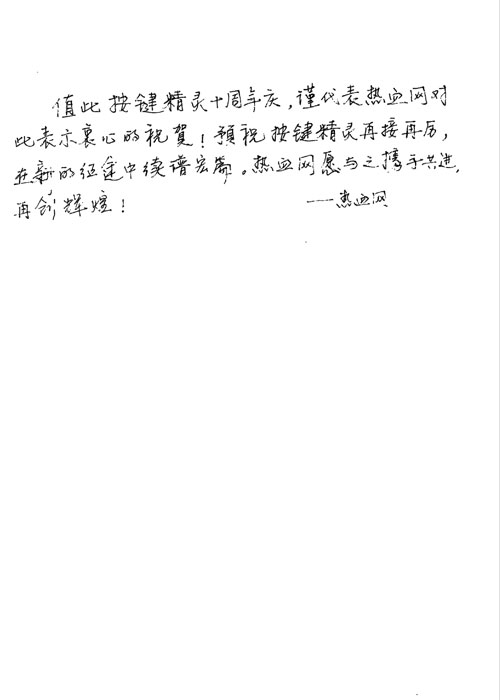 值此按键精灵十周年庆，谨代表热血网对
此表示衷心的祝賀！预祝按键精灵再接再厉，
在新的征途中续谱宏篇。热血网愿与之携手共进，
再创辉煌！ ——热血网